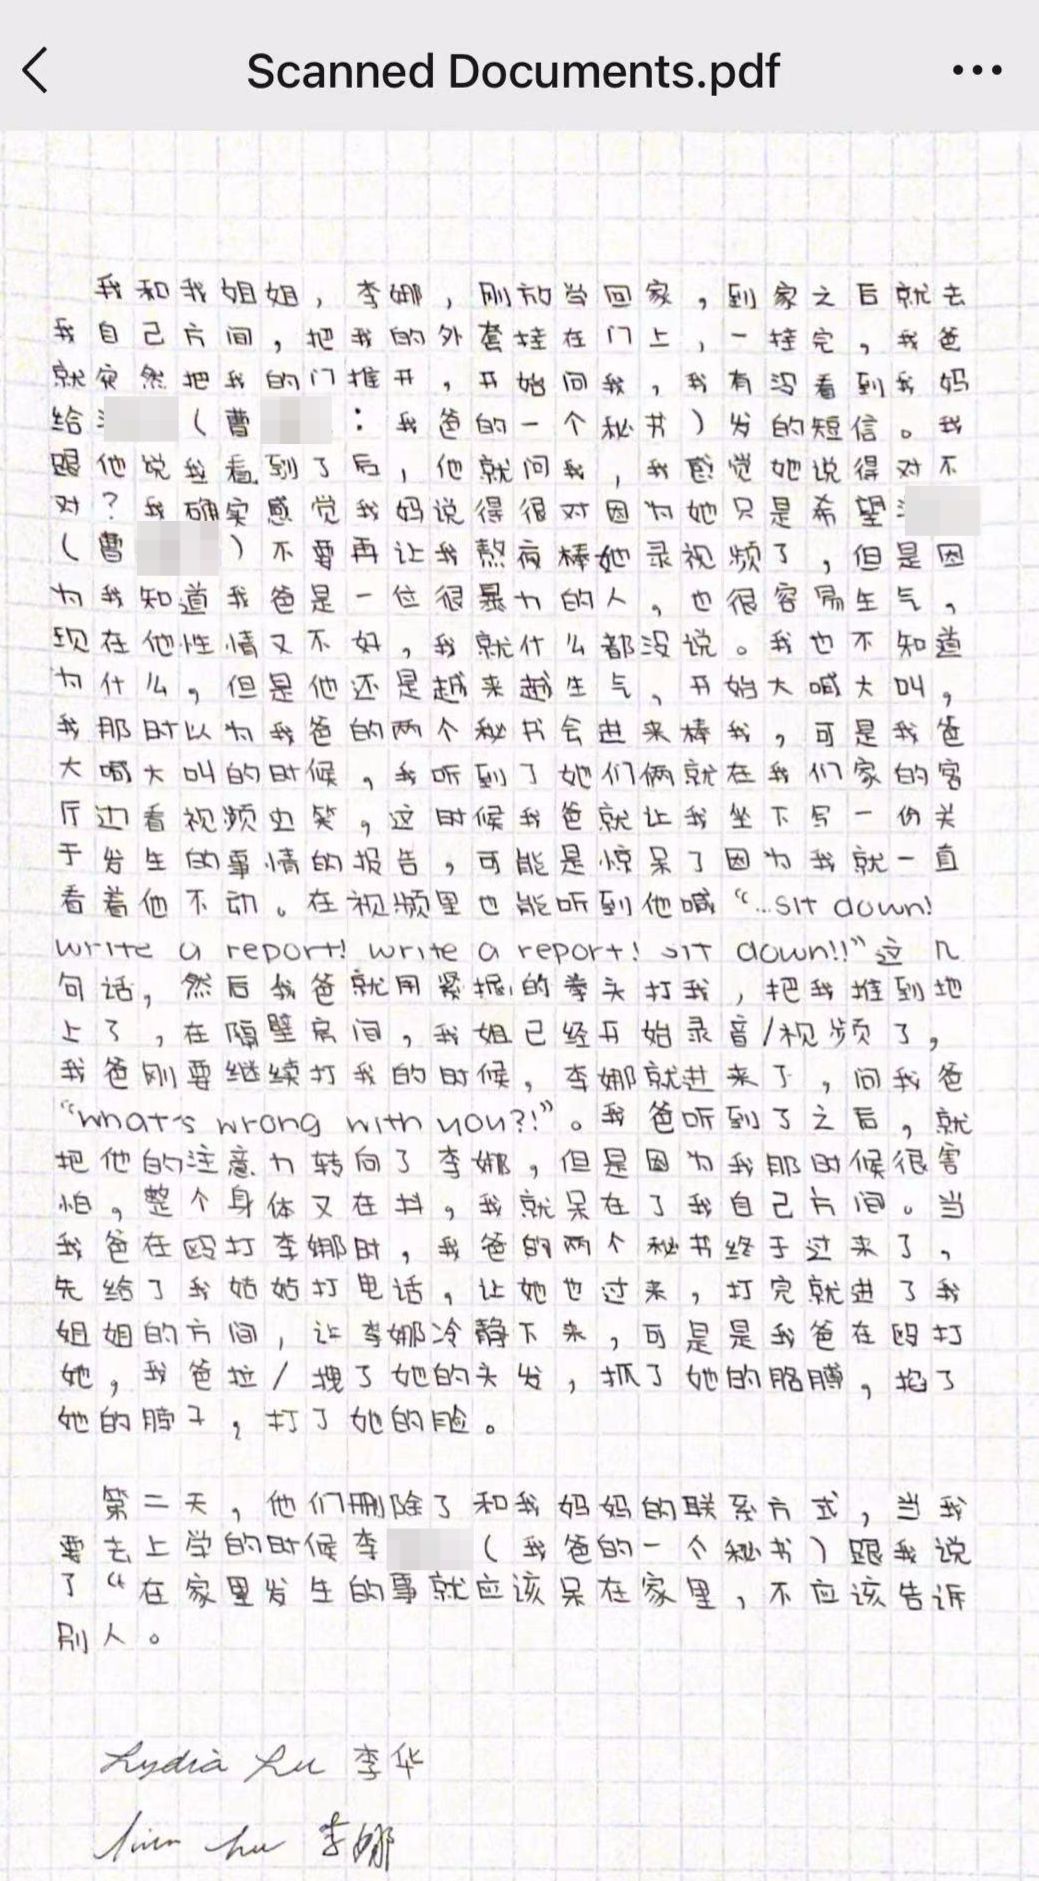 Scanned Documents.pdf
我和我姐姐，李娜，刚放当回家，到家之后就去
我自己房间，把我的外套挂在门上，一挂完，我爸
就突然把我的门推开，开始问我，我有没看到我妈
给（曹：我爸的一个秘书）发的短信。我
跟他说我看到了后，他就问我，我感觉她说得对不
对？我确实感觉我妈说得很对因为她只是希望
（曹）不要再让我熬夜棒她录视频了，但是因
为我知道我爸是一位很暴力的人，也很容易生气，
现在他性情又不好，我就什么都没说。我也不知道
为什么，但是他还是越来越生气，开始大喊大叫，
我那时以为我爸的两个秘书会进来棒我，可是我爸
大喊大叫的时候，我听到了她们俩就在我们家的客
厅边看视频边笑，这时候我爸就让我坐下写一份关
于发生的事情的报告，可能是惊呆了因为我就一直
看着他不动。在视频里也能听到他喊“...sit down!
write a report! write a report! sit down!!”这几
句话，然后我爸就用紧握的拳头打我，把我推到地
上了，在隔壁房间，我姐已经开始录音/视频了，
我爸刚要继续打我的时候，李娜就进来了，问我爸
“what's wrong with you?!”。我爸听到了之后，就
把他的注意力转向了李娜，但是因为我那时候很害
怕，整个身体又在抖，我就呆在了我自己房间。当
我爸在殴打李娜时，我爸的两个秘书终于过来了，
先给了我姑姑打电话，让她也过来，打完就进了我
姐姐的房间，让李娜冷静下来，可是是我爸在殴打
她，我爸拉/拽了她的头发，抓了她的胳膊，掐了
她的脖子，打了她的脸。
第二天，他们删除了和我妈妈的联系方式，当我
要去上学的时候李（我爸的一个秘书）跟我说
了“在家里发生的事就应该呆在家里，不应该告诉
别人。
Lydia Lu 李华
Lu 李娜